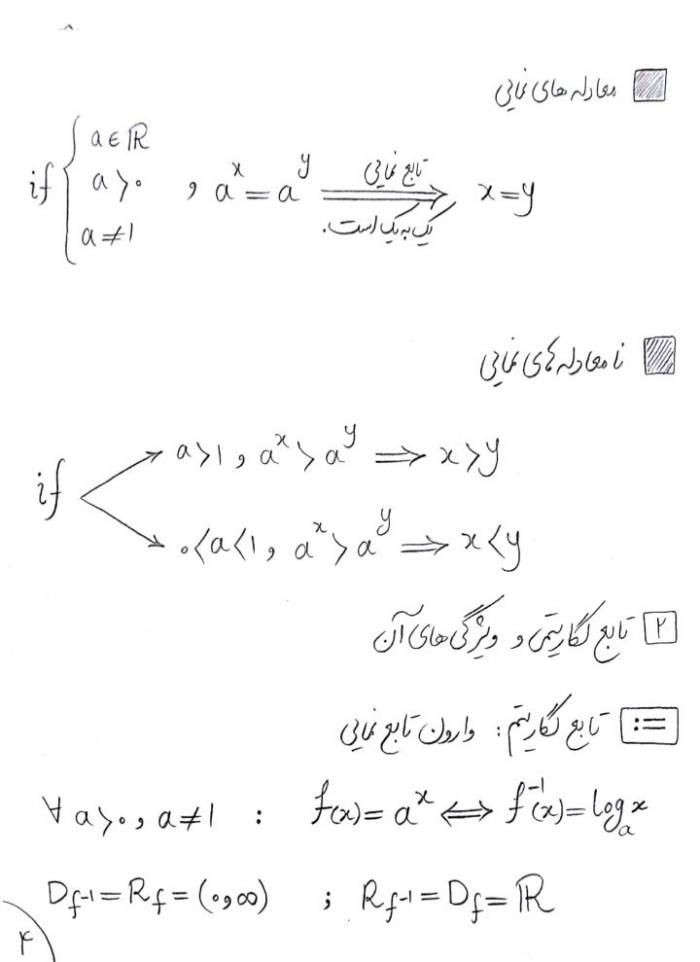 معادله های نمایی
if { a∈ℝ
a>۰ , a^x = a^y ⟹ x=y
a≠1
تابع نمایی
یک به یک است.
نامعادله های نمایی
if
a>1 , a^x > a^y ⟹ x>y
۰<a<1 , a^x > a^y ⟹ x<y
۲ تابع لگاریتمی و ویژگی های آن
:= تابع لگاریتم: وارون تابع نمایی
∀ a>۰ , a≠1 : f(x)= a^x ⟺ f^-1(x)= log_a x
D_f-1 = R_f = (۰,∞) ; R_f-1 = D_f = ℝ
۴